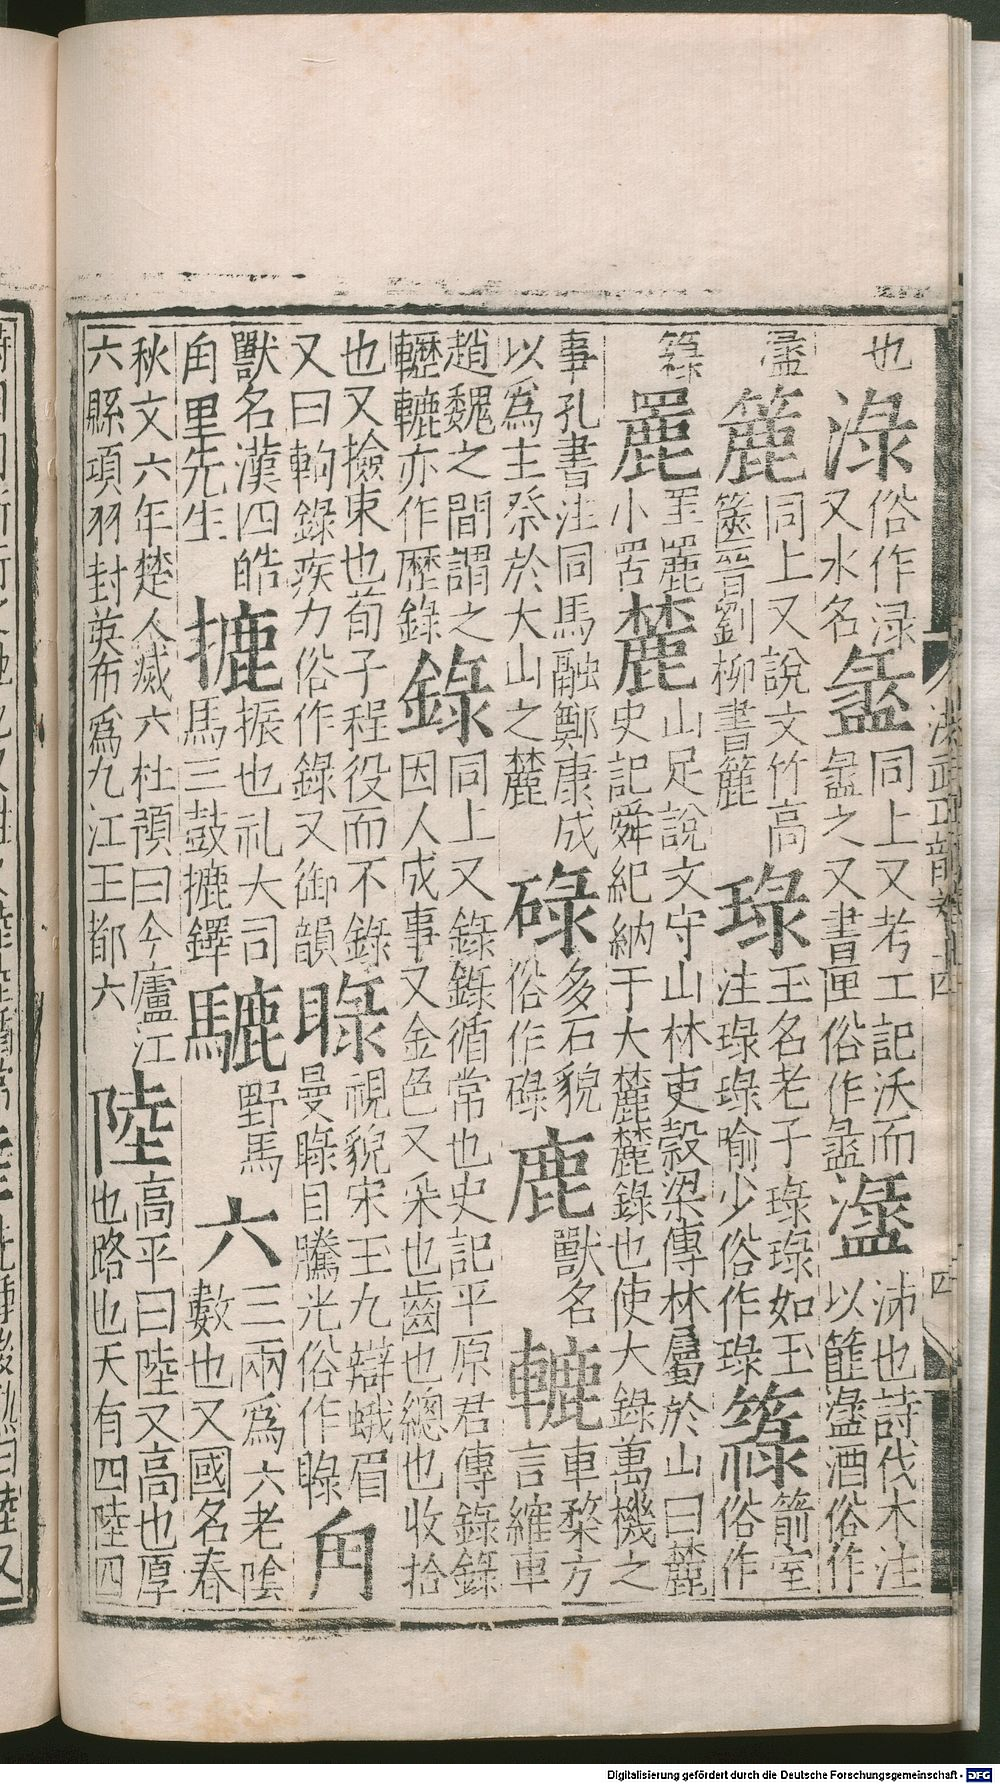 洪武正韻卷十四 四
也淥俗作渌又水名盝同上又考工記沃而盝之又書匣俗作盝也詩伐木注以篚酒俗作
簏同上又說文竹高篋晉劉柳書簏琭玉名老子琭琭如玉注琭琭喻少俗作琭箭室俗作
簶䍡罜䍡小罟麓山足說文守山林吏穀梁傳林屬於山曰麓史記舜紀納于大麓麓錄也使大錄萬機之
事孔書注同馬融鄭康成以爲主祭於大山之麓碌多石貌俗作碌鹿獸名轆車鞪方言繀車
趙魏之間謂之轣轆亦作歷錄錄同上又錄錄循常也史記平原君傳錄錄因人成事又金色又采也齒也總也收拾
也又撿束也荀子程役而不錄又曰軥錄疾力俗作錄又御韻睩視貌宋玉九辯蛾眉曼睩目騰光俗作睩甪
獸名漢四皓甪里先生摝振也礼大司馬三鼓摝鐸騼野馬六三兩爲六老陰數也又國名春
秋文六年楚人滅六杜預曰今廬江六縣項羽封英布爲九江王都六陸高平曰陸又高也厚也路也天有四陸四
Digitalisierung gefördert durch die Deutsche Forschungsgemeinschaft - DFG